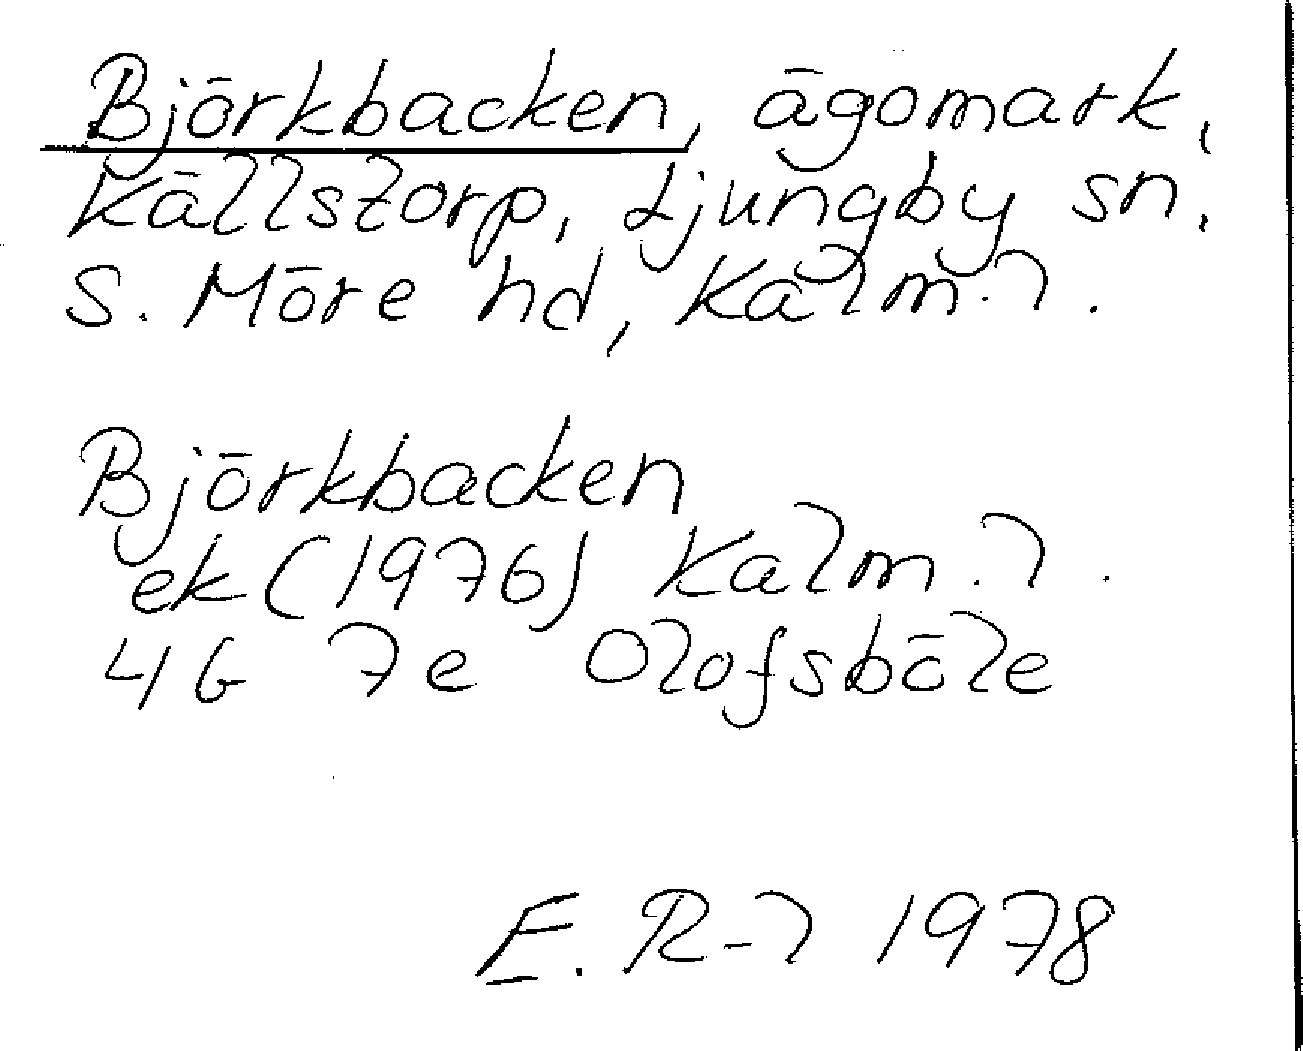 Björkbacken, ägomark,
Källstorp, Ljungby sn,
S. Möre hd, Kalm. l.
Björkbacken
ek (1976) Kalm. l.
4G 7e Olofsböle
E. R-l 1978